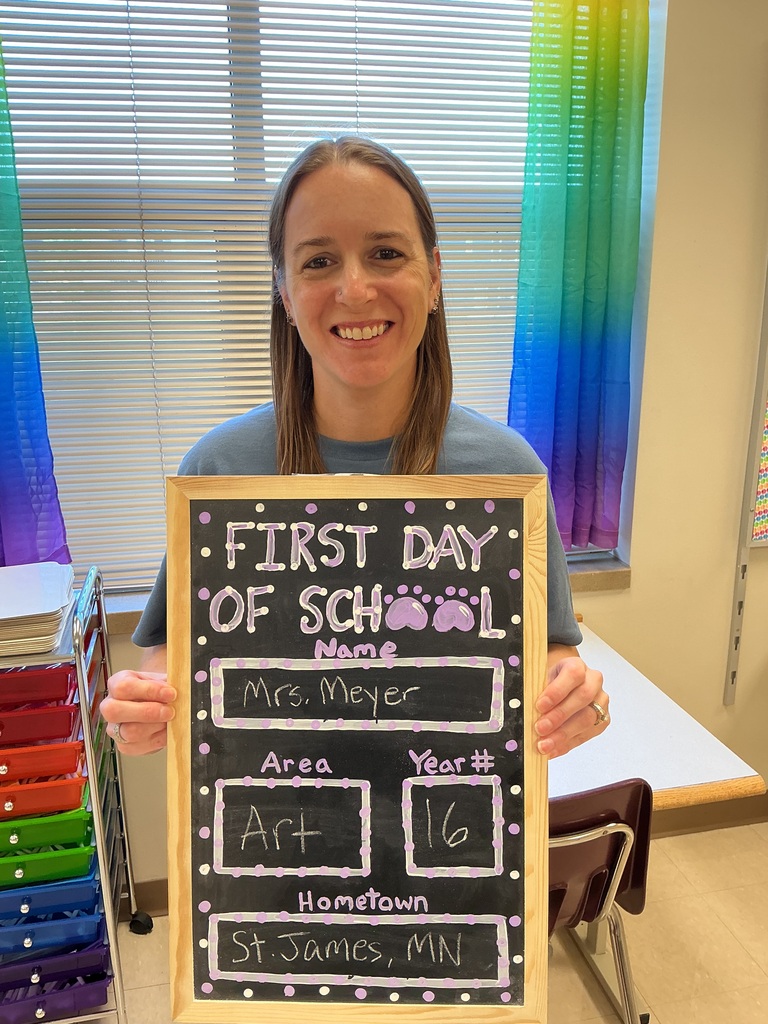 FIRST DAY
OF SCHOOL
Name
Mrs. Meyer
Area
Year #
Art
16
Hometown
St. James, MN